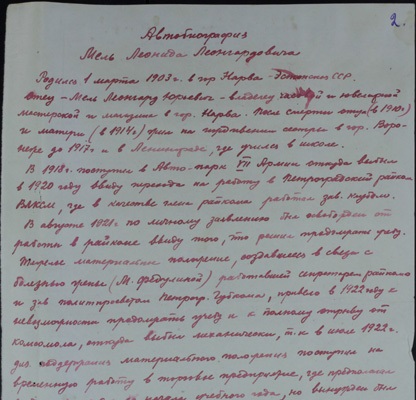 2.
Автобиография
Мель Леонида Леонгардовича
Родился 1 марта 1903 г. в гор Нарва - Эстонской ССР.
Отец – Мель Леонгард Юрьевич – владелец часовой и ювелирной
мастерской и магазина в гор. Нарва. После смерти отца (в 1910 г)
и матери (в 1914 г) жил на иждивении сестры в гор. Воро-
неже до 1917 г и в Ленинграде, где учился в школе.
В 1918 г. поступил в Авто-парк VII Армии откуда выбыл
в 1920 году ввиду перехода на работу в Петроградский райком
ВЛКСМ, где в качестве члена райкома работал зав. клубом.
В августе 1921 г по личному заявлению был освобожден от
работы в райкоме ввиду того, что решил продолжать учебу.
Тяжелое материальное положение, создавшееся в связи с
болезнью жены (М. Федулиной) работавшей секретарем райкома
и зав политпросветом Петрогр. Губкома, привело в 1922 году к
невозможности продолжать учебу и к полному отрыву от
комсомола, откуда выбыл механически, т.к в июле 1922 г.
для поддержания материального положения поступил на
временную работу в торговое предприятие, где предполагал
начала учебного года, но вынужден был